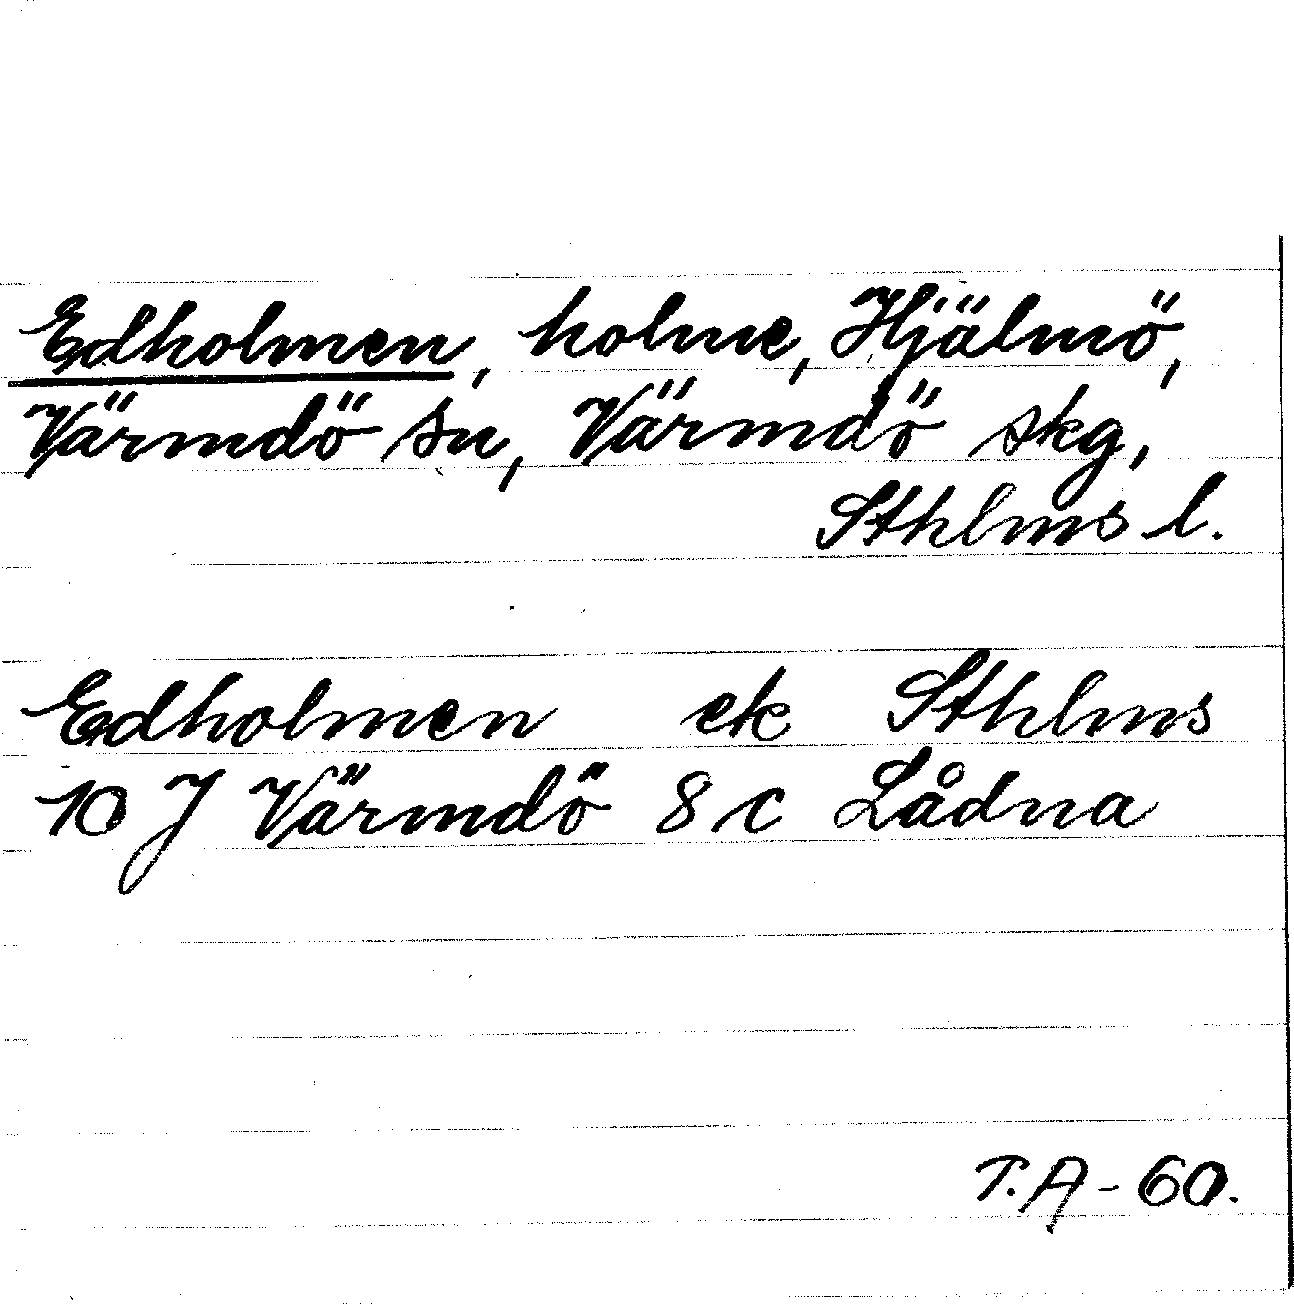 Edholmen, holme, Hjälmö,
Värmdö sn, Värmdö skg,
Sthlms l.
Edholmen ek Sthlms
10 J Värmdö 8 c Lådna
T.A - 60.